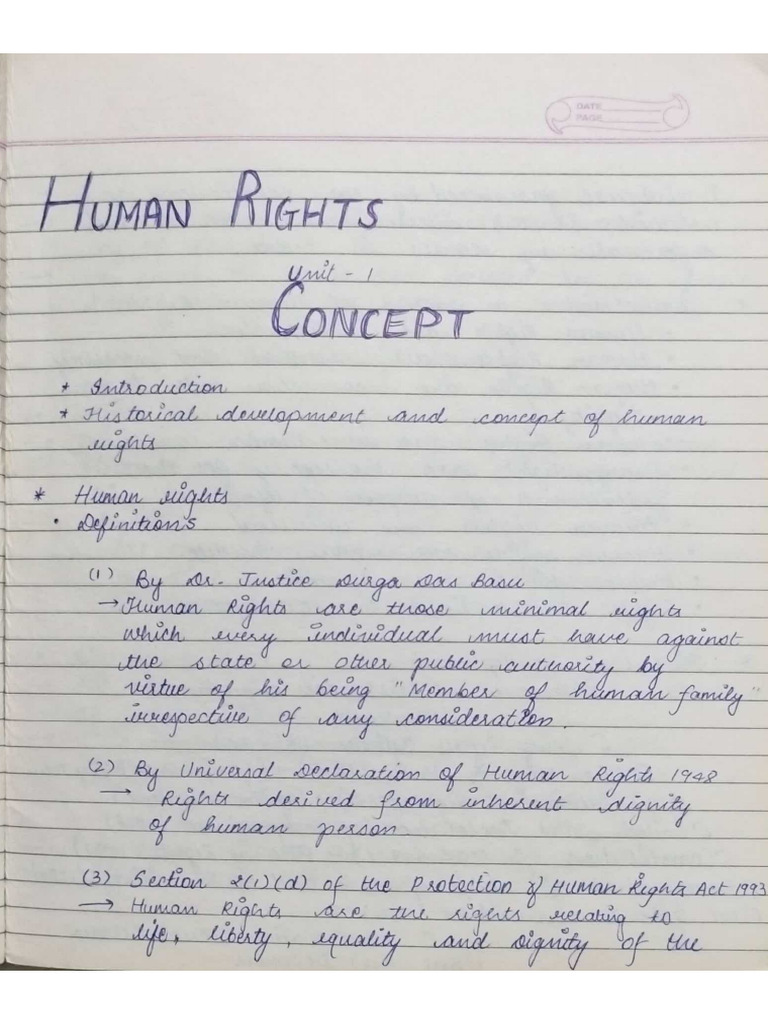 DATE
PAGE
HUMAN RIGHTS
Unit - 1
CONCEPT
* Introduction
* Historical development and concept of human
rights
* Human rights
• Definitions
(1) By Dr. Justice Durga Das Basu
→ Human Rights are those minimal rights
which every individual must have against
the state or other public authority by
virtue of his being "Member of human family"
irrespective of any consideration.
(2) By Universal Declaration of Human Rights 1948
→ Rights derived from inherent dignity
of human person
(3) Section 2(1)(d) of the Protection of Human Rights Act 1993
→ Human Rights are the rights relating to
life, liberty, equality and Dignity of the